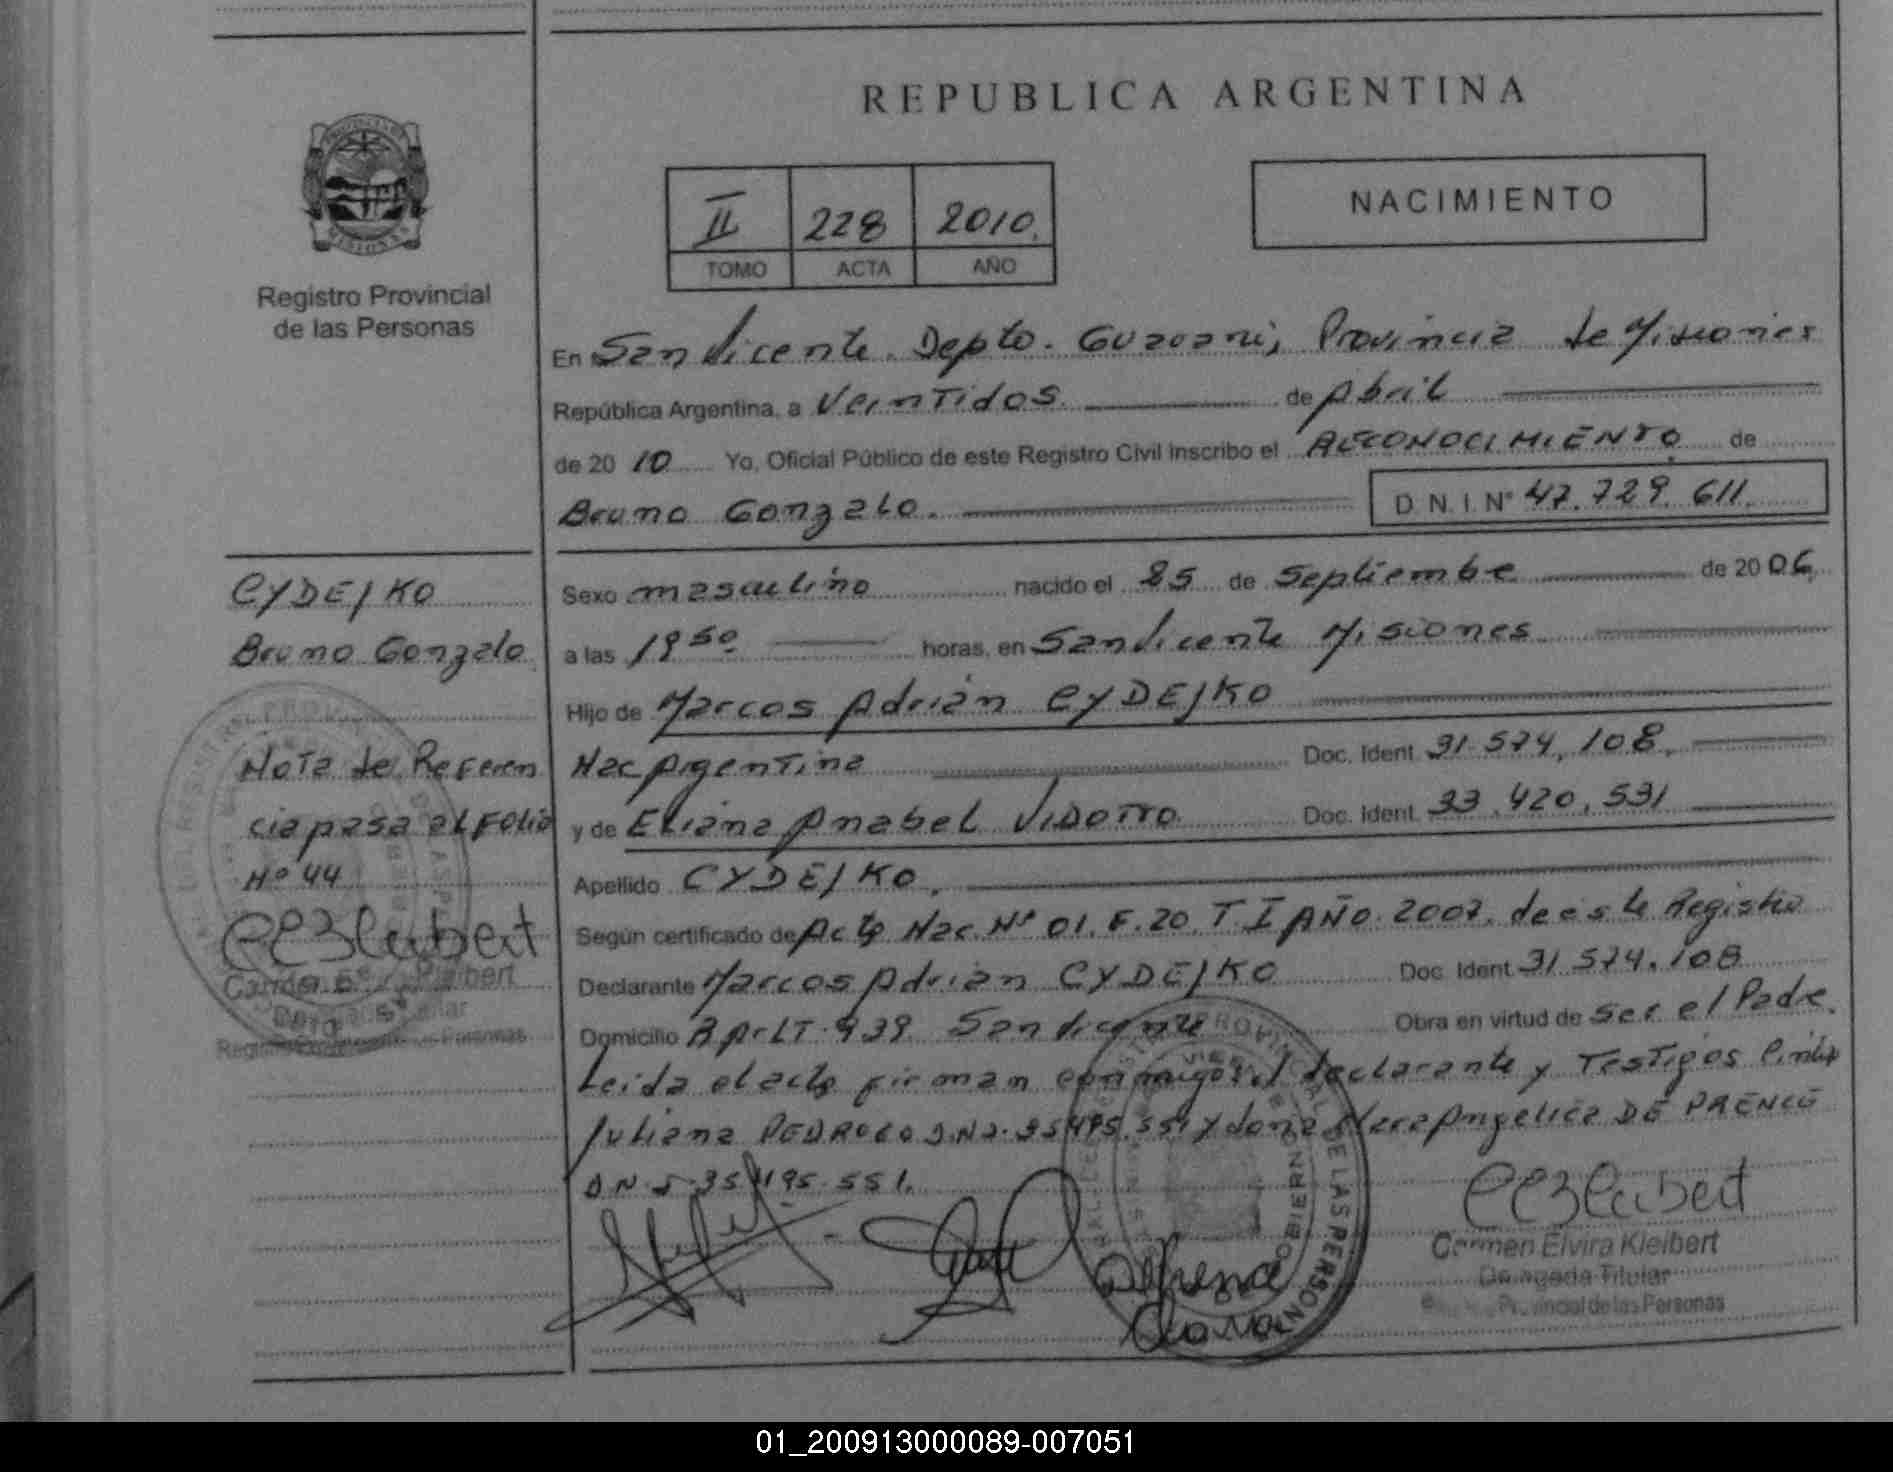 REPUBLICA ARGENTINA
II 228 2010.
TOMO ACTA AÑO
NACIMIENTO
PROVINCIA DE MISIONES
Registro Provincial
de las Personas
En San Vicente. Depto. Guarani, Provincia de Misiones
República Argentina, a Veintidos de Abril
de 20 10 Yo, Oficial Público de este Registro Civil Inscribo el RECONOCIMIENTO de
Bruno Gonzalo. D. N. I. Nº 47.729.611
CYDEJKO
Bruno Gonzalo
Nota de Referen
cia pasa al Folio
Nº 44
Sexo masculino nacido el 25 de Septiembre de 2006
a las 19 50 horas, en San Vicente Misiones
Hijo de Marcos Adrián CYDEJKO
Nac Argentina Doc. Ident. 31.574.108.
y de Eliana Anabel VIDOTTO Doc. Ident. 33.420.531
Apellido CYDEJKO.
Según certificado de Acta Nac. Nº 01. F. 20. T. I AÑO. 2007. de este Registro
Declarante Marcos Adrián CYDEJKO Doc. Ident. 31 574.108
Domicilio San Vicente Obra en virtud de ser el Padre.
Leida el acta firman conmigo el declarante y Testigos
Juliana y doña Angelica DE PRENCE
D N I 35.195.551.
Carmen Elvira Kleibert
Delegada Titular
Provincial de las Personas
01_200913000089-007051